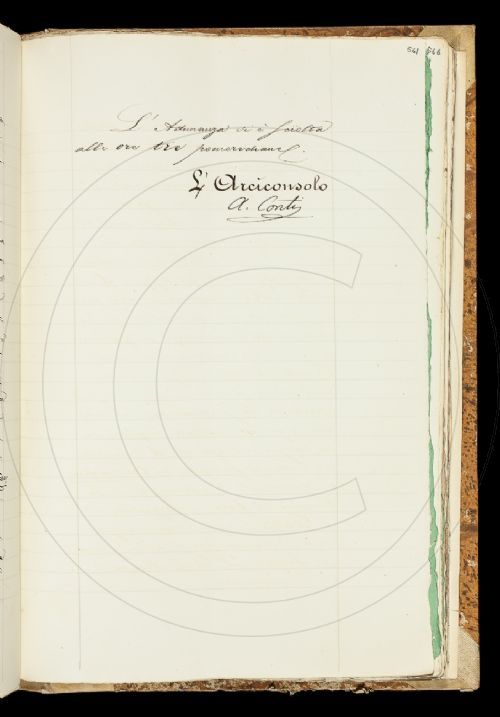 561 566
L'Adunanza si è sciolta
alle ore tre pomeridiane.
L'Arciconsolo
A. Conti